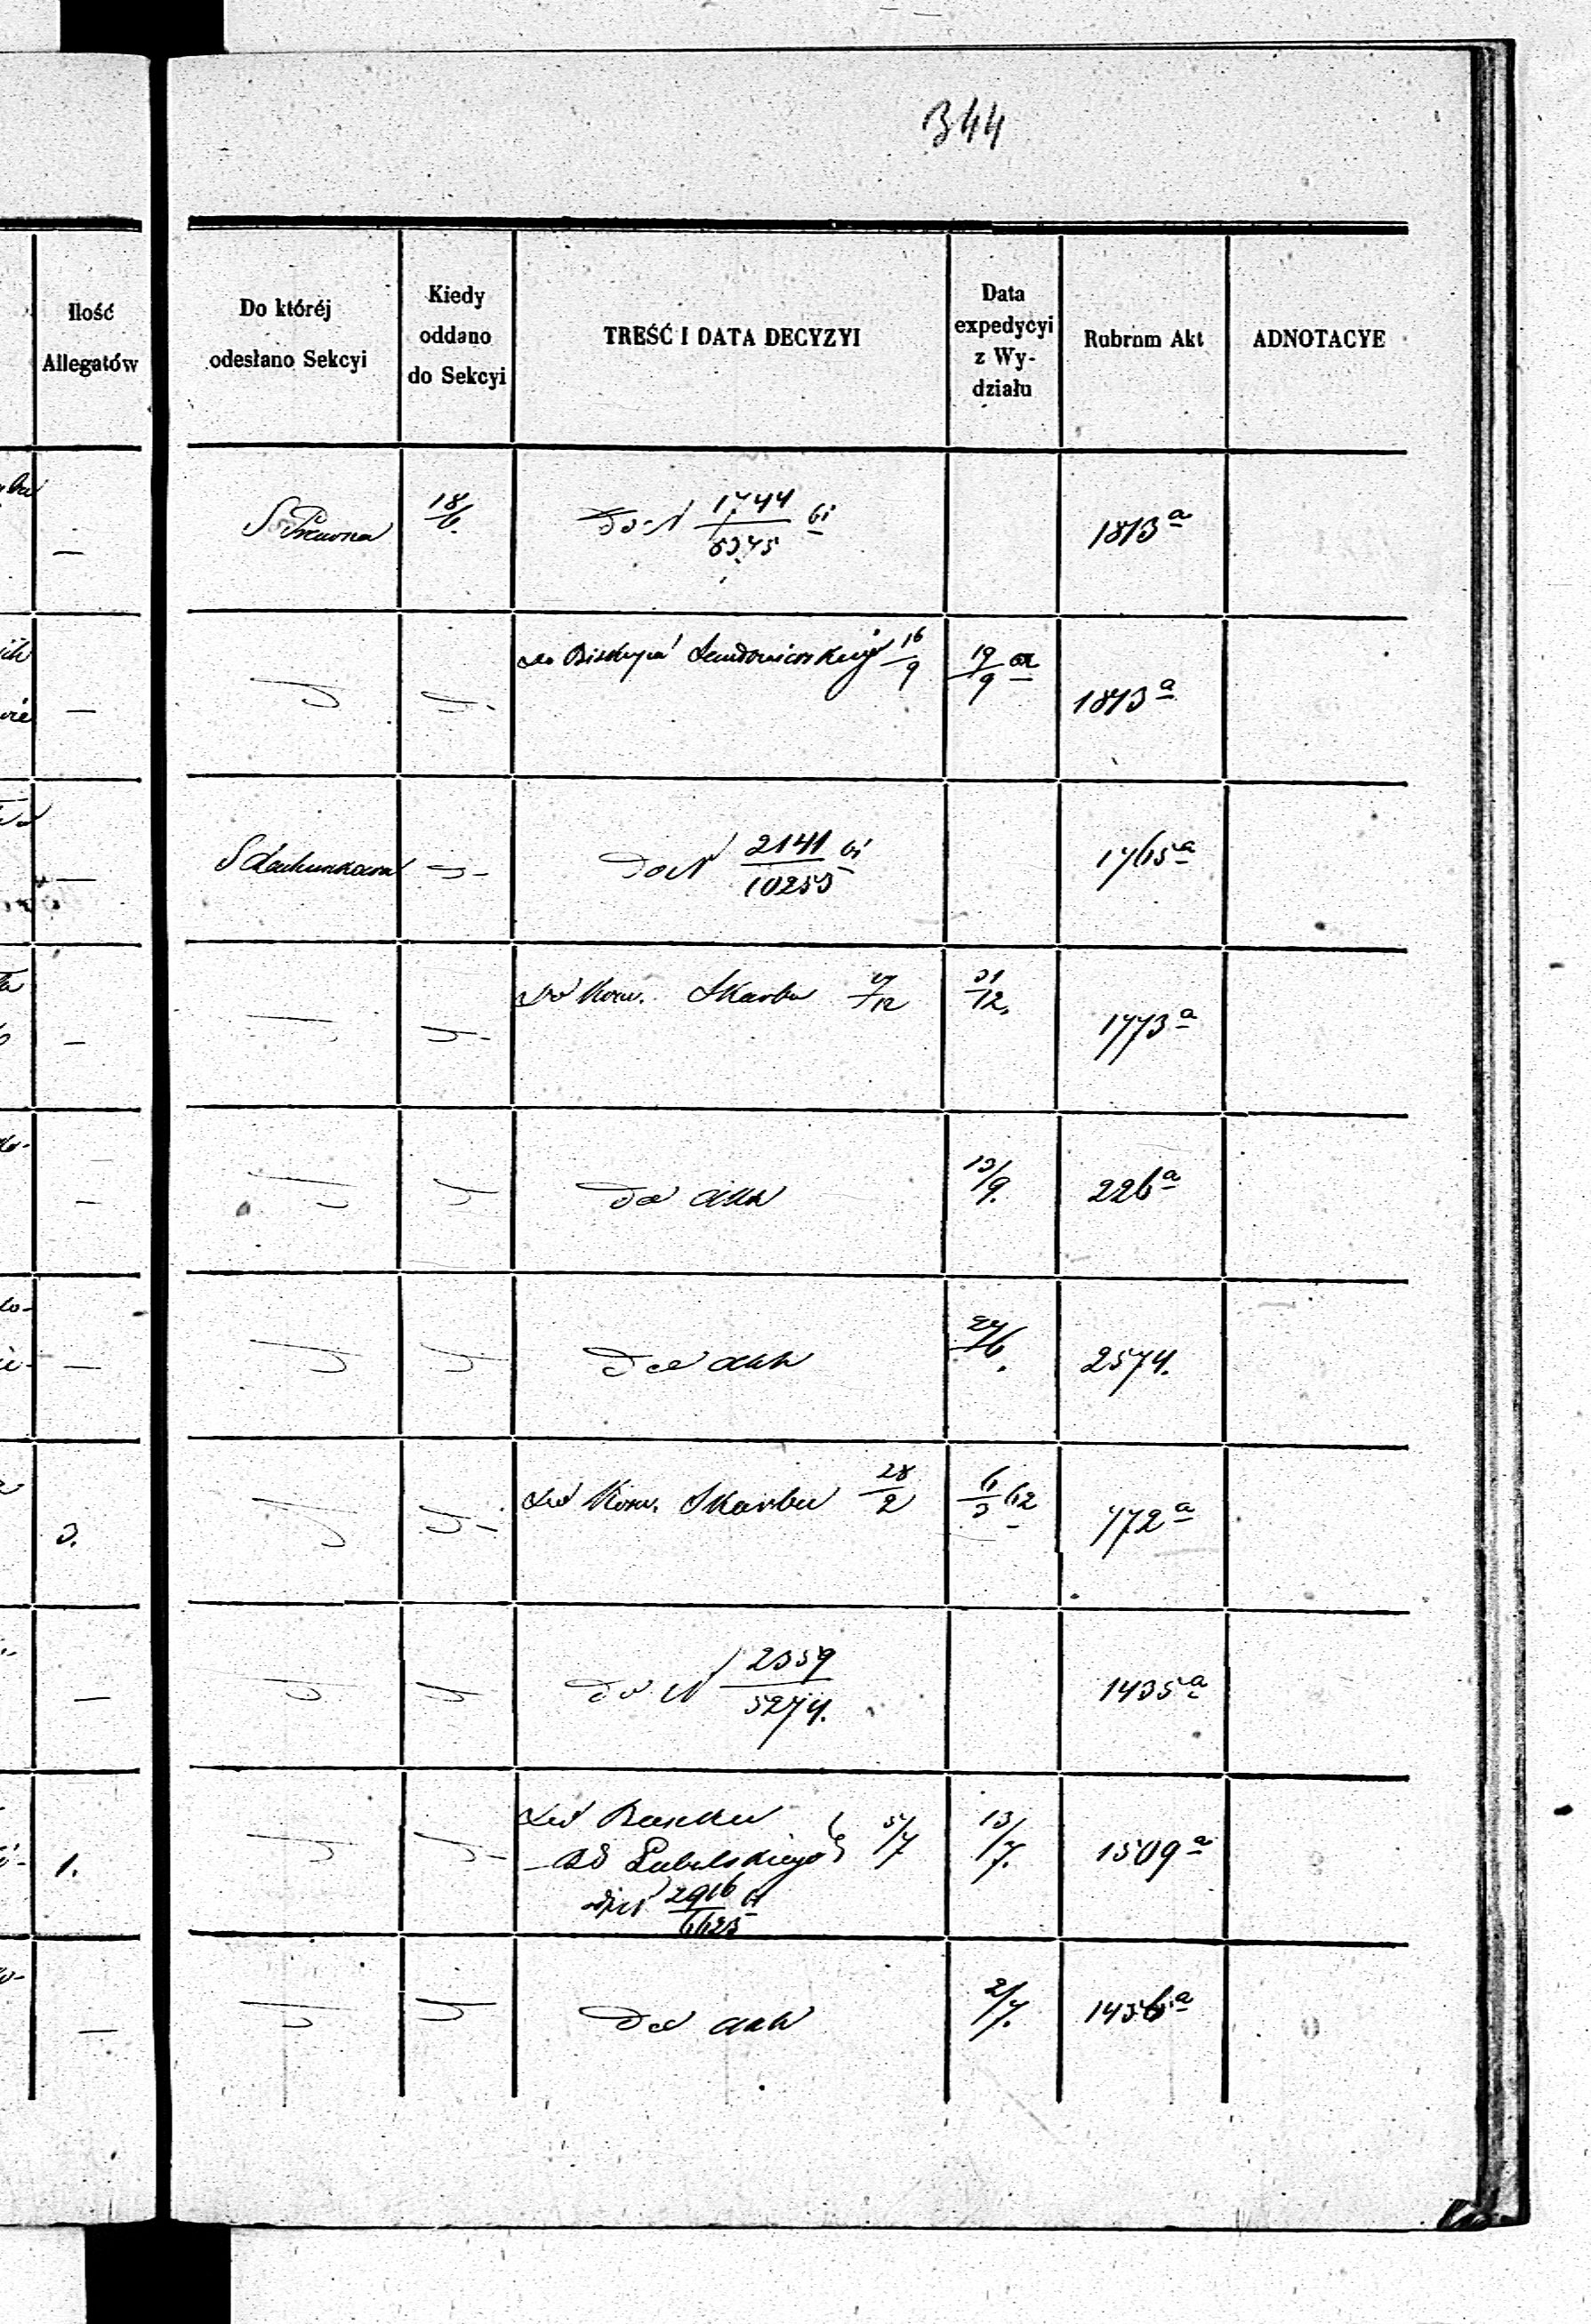 344
Ilość
Allegatów
Do któréj
odesłano Sekcyi
Kiedy
oddano
do Sekcyi
TREŚĆ I DATA DECYZYI
Data
expedycyi
z Wy-
działu
Rubrum Akt
ADNOTACYE
—
S Prawna
18/6.
Do N 1744/6345 61
1813 a
—
do Biskupa Sandomierskiego 16/9
19/9
1813 a
—
S Rachunkowa
Do N 2141/10253 61
1765 a
—
Do Kom. Skarbu 17/12
31/12.
1773 a
—
Do akt
13/9.
226 a
—
Do akt
27/6.
2574.
3.
Do Kom. Skarbu 28/2
6/3 62
772 a
—
Do N 2359/5274.
1435 a
1.
Do Banku
RG Lubelskiego } 5/7
13/7.
1509 a
2916/6623
—
Do akt
2/7.
1436 a